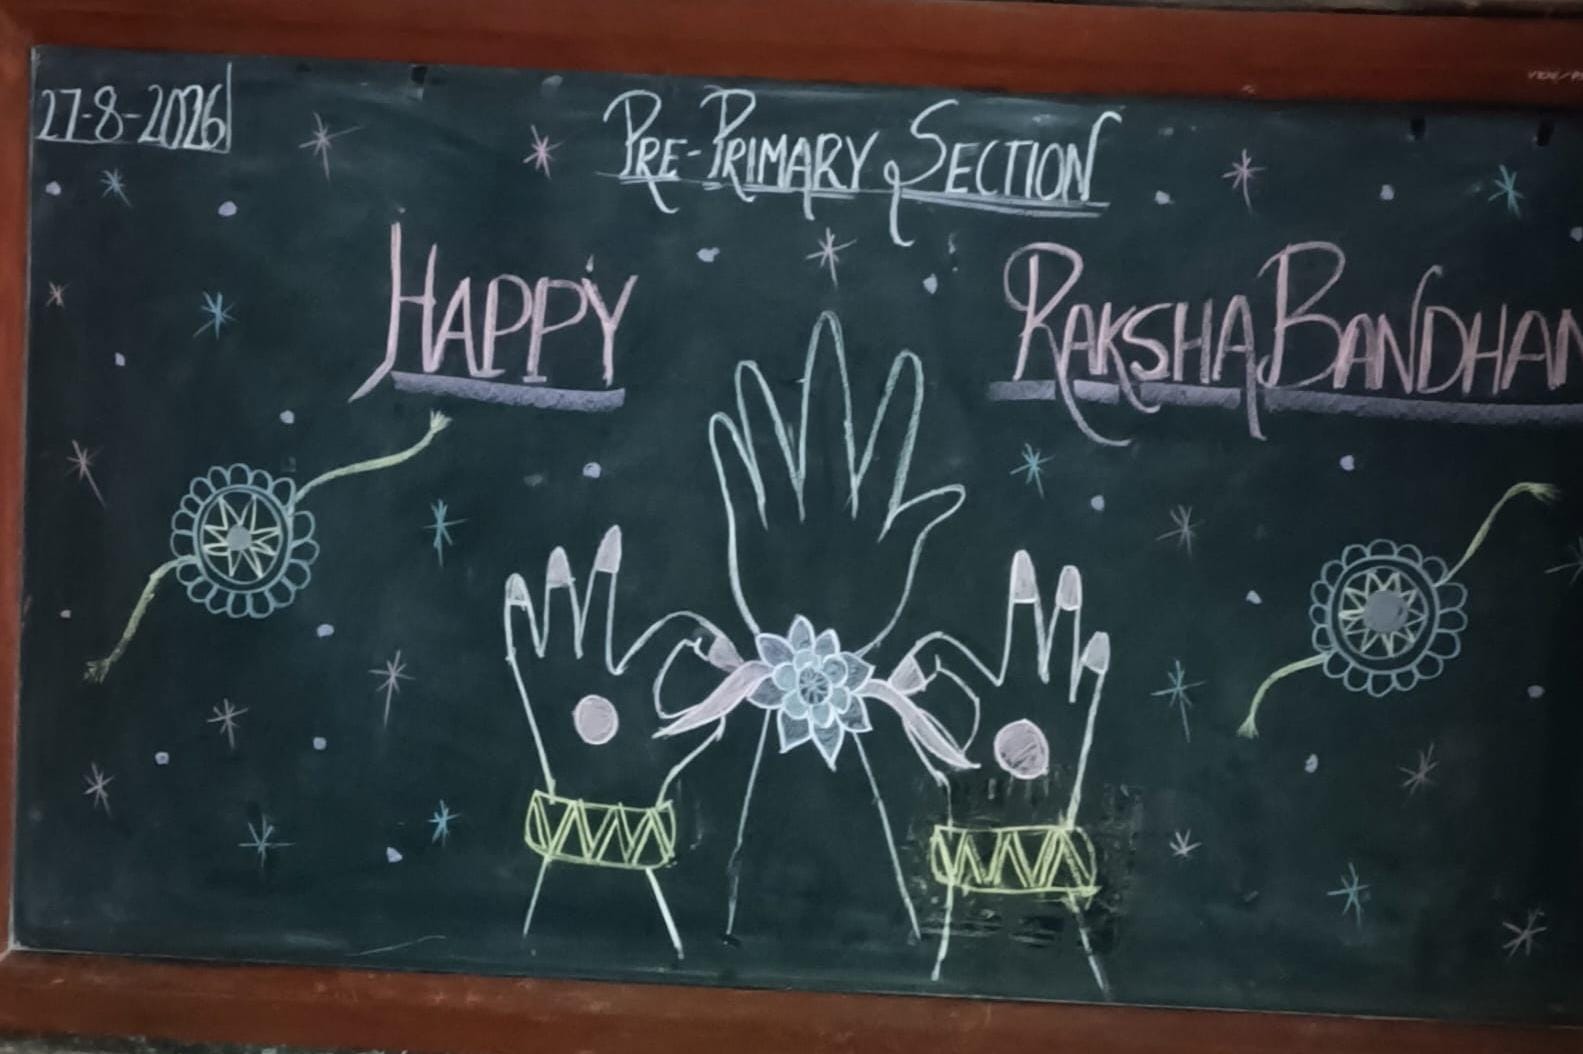 27-8-2026
PRE-PRIMARY SECTION
HAPPY RAKSHA BANDHAN